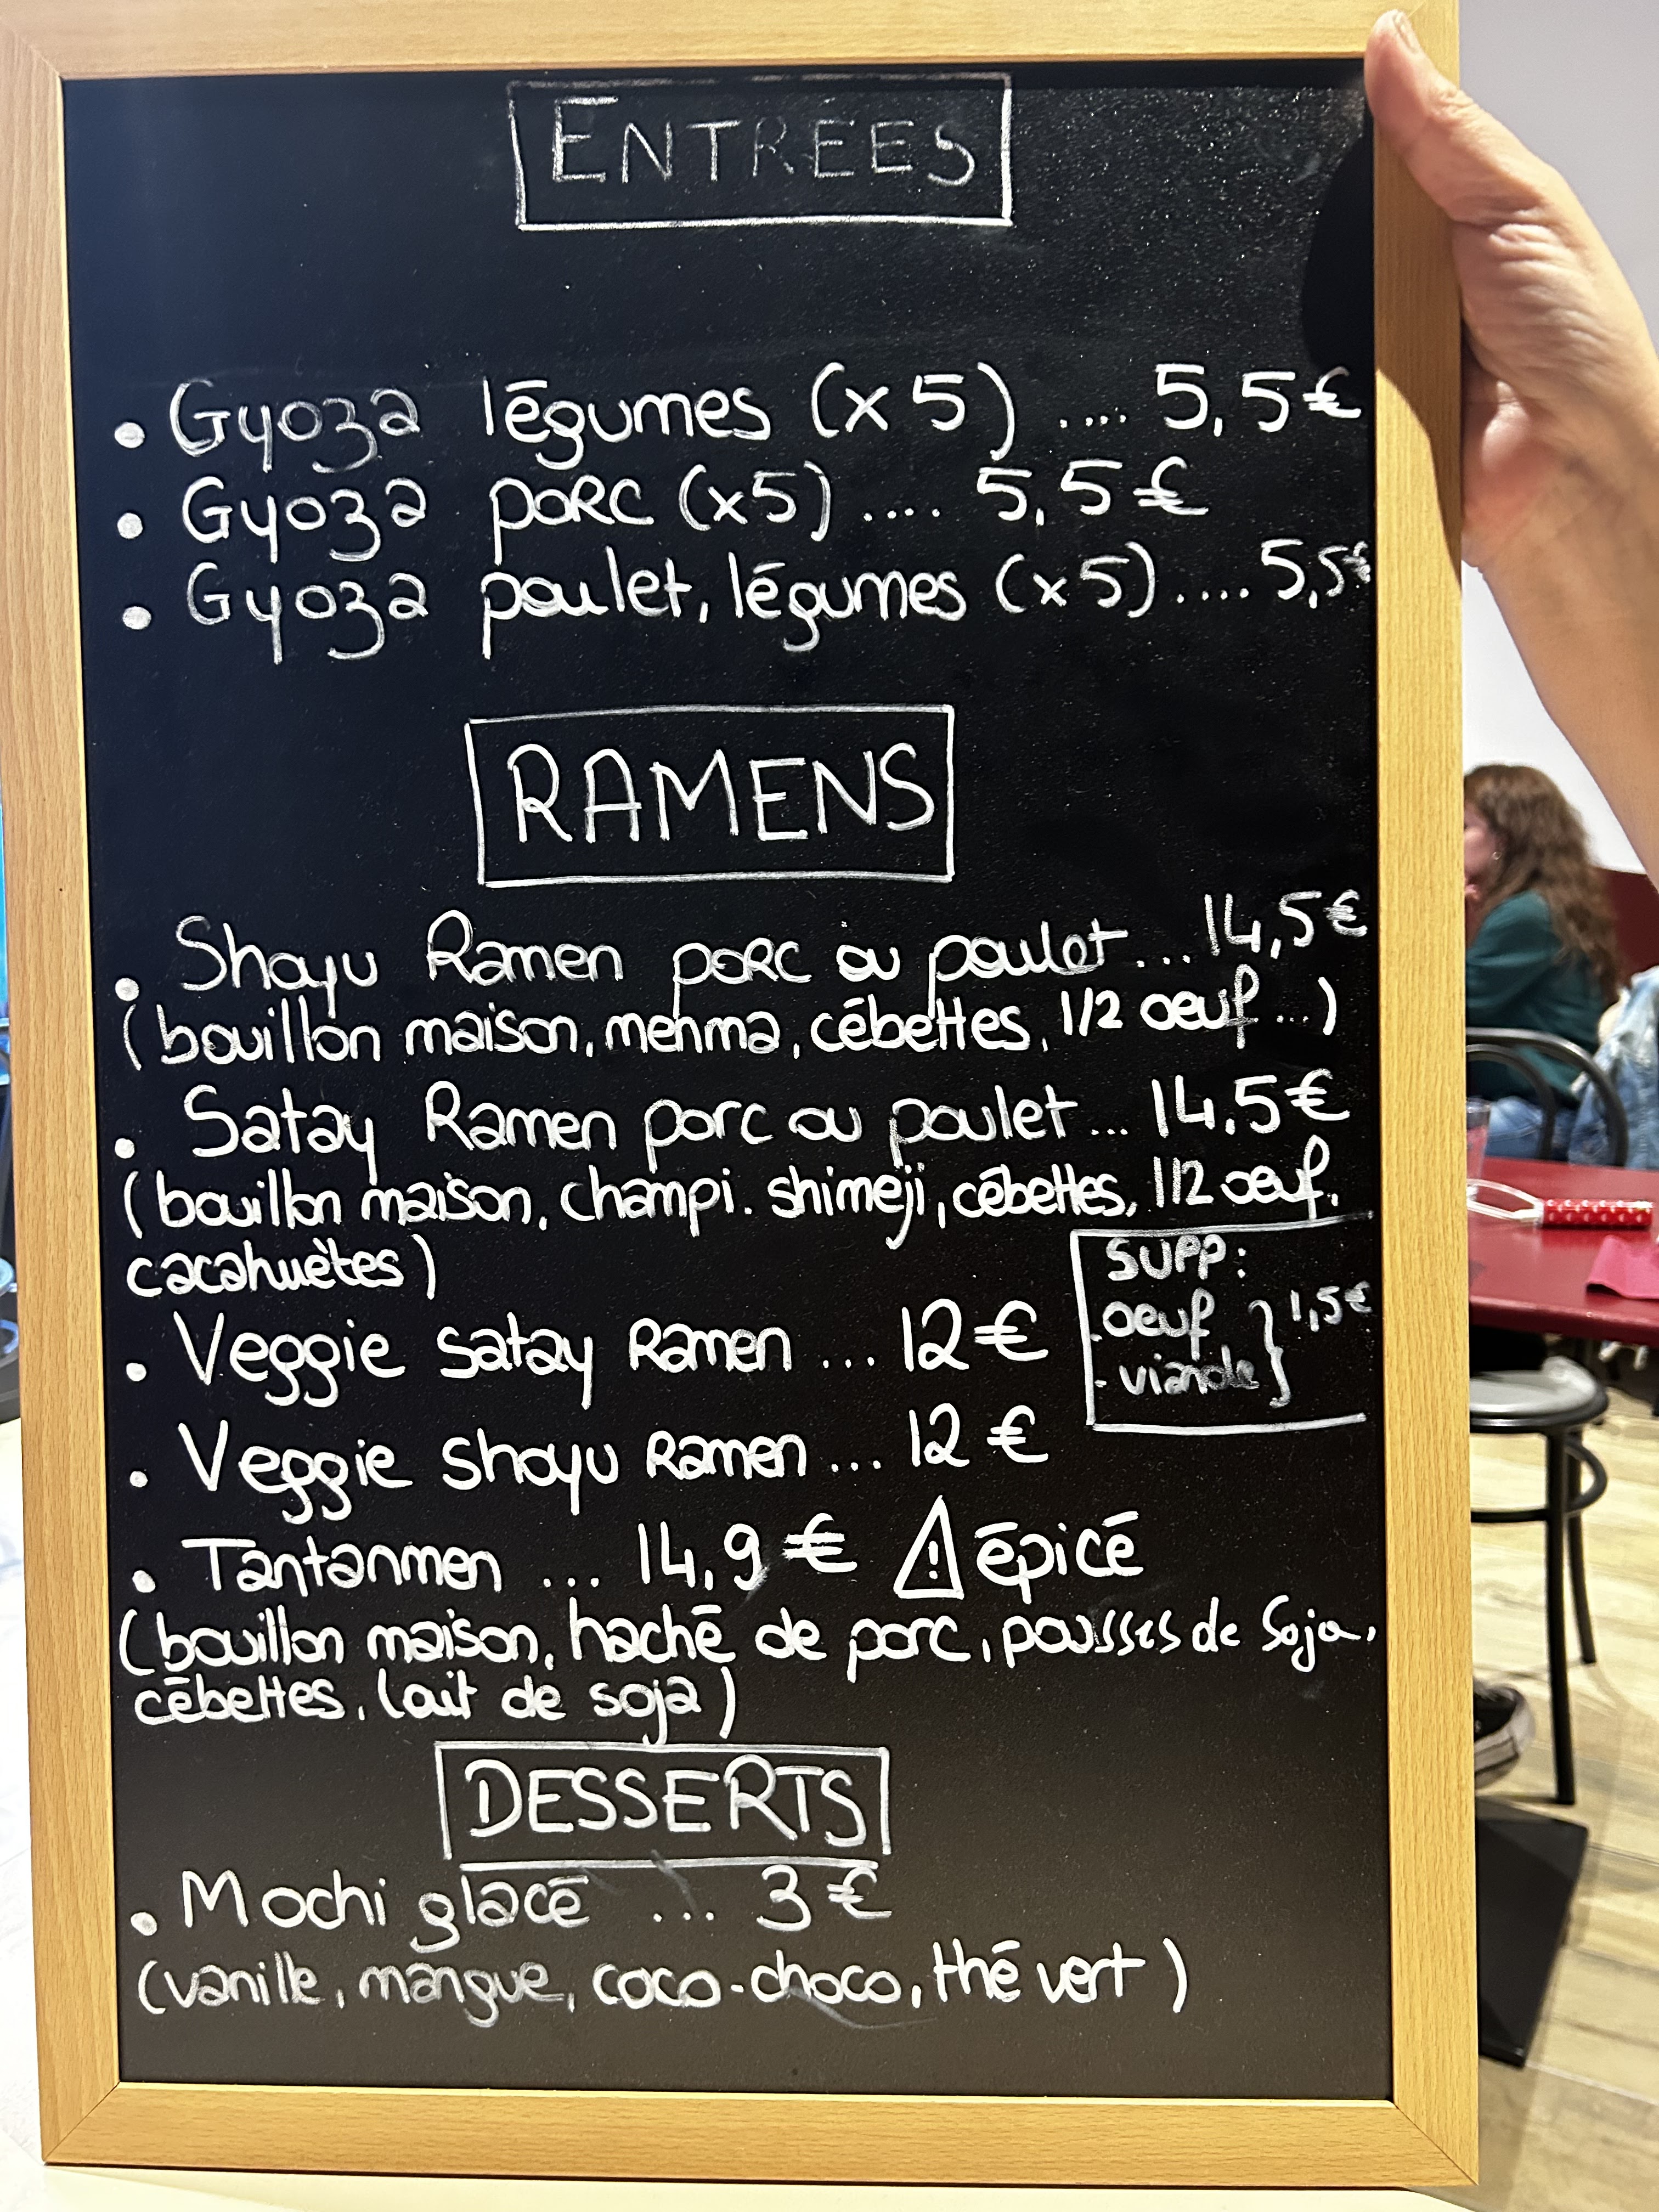 ENTRÉES
• Gyoza légumes (x5) .... 5,5€
• Gyoza porc (x5) .... 5,5€
• Gyoza poulet, légumes (x5) .... 5,5€
RAMENS
• Shoyu Ramen porc ou poulet ... 14,5€
(bouillon maison, menma, cébettes, 1/2 oeuf ...)
• Satay Ramen porc ou poulet ... 14,5€
(bouillon maison, champi. shimeji, cébettes, 1/2 oeuf,
cacahuètes)
SUPP:
- oeuf
- viande } 1,5€
• Veggie satay Ramen ... 12€
• Veggie shoyu Ramen ... 12€
• Tantanmen ... 14,9€ ⚠ épicé
(bouillon maison, haché de porc, pousses de soja,
cébettes, lait de soja)
DESSERTS
• Mochi glacé ... 3€
(vanille, mangue, coco-choco, thé vert)